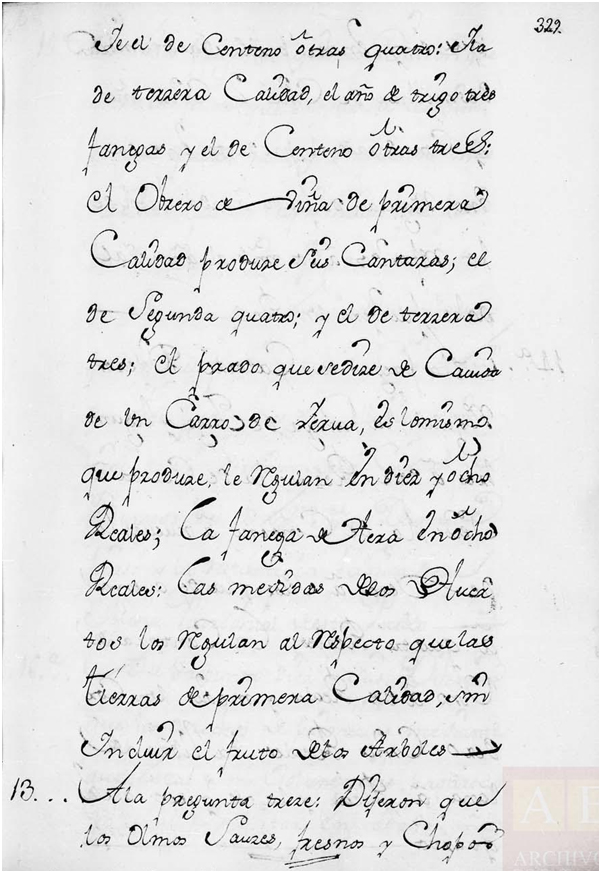 329.
Je el de Centeno otras quatro: Yla
de terzera Calidad, el año de trigo tres
fanegas y el de Centeno otras tres:
el Obrero de viña de primera
Calidad produze seis Cantaras; el
de Segunda quatro; y el de terzera
tres; el prado que sedize de Cauida
de Vn Carro de Yerua, es lomismo
que produze, le Regulan en diez y ocho
Reales; la fanega de Hera en ocho
Reales: las medidas delos Huer
tos los Regulan al Respecto que las
tierras de primera Calidad, sin
Incluir el fruto delos Arboles
13... Ala pregunta treze: Dijeron que
los Olmos Sauzes, fresnos y Chopos
A E
ARCHIVO